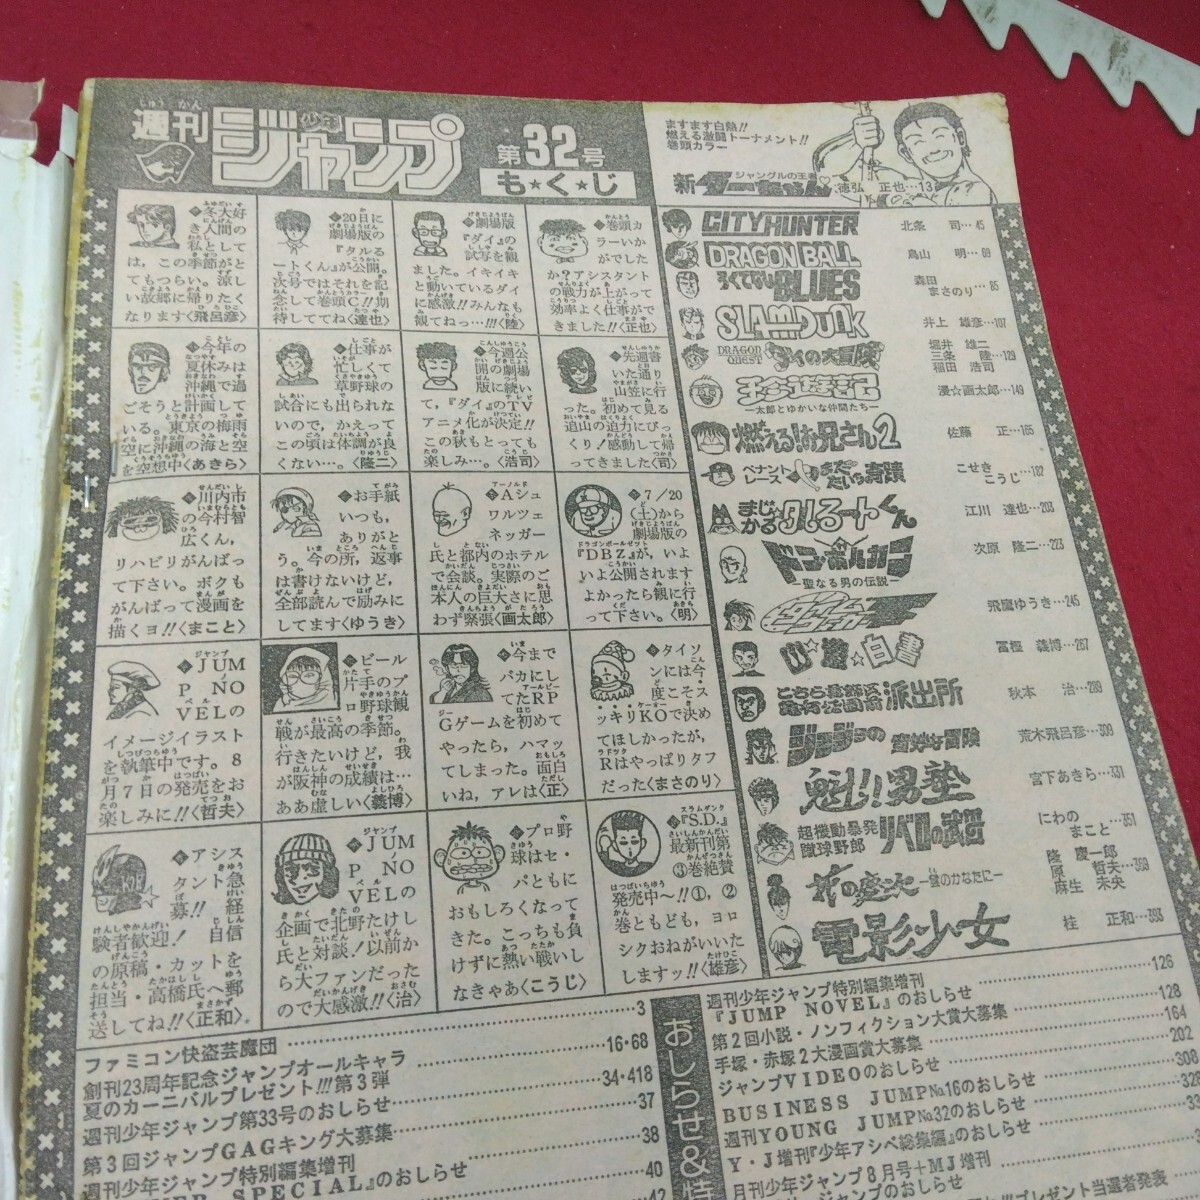 週刊
少年
ジャンプ
第32号
も★く★じ
ますます白熱!!
燃える激闘トーナメント!!
巻頭カラー
ジャングルの王者
新ターちゃん
徳弘 正也…13
CITY HUNTER
北条 司…45
DRAGON BALL
鳥山 明…69
ろくでなしBLUES
森田まさのり…85
SLAM DUNK
井上 雄彦…107
DRAGON QUEST ダイの大冒険
堀井 雄二
三条 陸…129
稲田 浩司
珍遊記
―太郎とゆかいな仲間たち―
漫☆画太郎…149
燃える!お兄さん2
佐藤 正…165
ペナントレース やまだたいちの奇蹟
こせきこうじ…182
まじかる☆タルるートくん
江川 達也…203
ドン・ボルカン
―聖なる男の伝説―
次原 隆二…223
飛鷹ゆうき…245
幽☆遊☆白書
冨樫 義博…267
こちら葛飾区亀有公園前派出所
秋本 治…289
ジョジョの奇妙な冒険
荒木飛呂彦…309
魁!!男塾
宮下あきら…331
超機動暴発蹴球野郎 リベロの武田
にわのまこと…351
花の慶次―雲のかなたに―
隆 慶一郎
原 哲夫…369
麻生 未央
電影少女
桂 正和…393
◆冬大好き人間の私としては、この季節がとてもつらい。涼しい故郷に帰りたくなります〈飛呂彦〉
◆20日に劇場版の『タルるートくん』が公開。次号ではそれを記念して巻頭C!!期待しててね〈達也〉
◆劇場版『ダイ』の試写を観ました。イキイキと動いているダイに感激!!みんなも観てねっ…!!!〈陸〉
◆巻頭カラーいかがでしたか?アシスタントの戦力が上がって効率よく仕事ができました!!〈正也〉
◆今年の夏休みは沖縄で過ごそうと計画している。東京の梅雨空に沖縄の海と空を空想中〈あきら〉
◆仕事が忙しくて草野球の試合にも出られないので、かえってこの頃は体調が良くない…。〈隆二〉
◆今週公開の劇場版に続いて、『ダイ』のTVアニメ化が決定!!この秋もとっても楽しみ…。〈浩司〉
◆先週書いた通り山笠に行った。初めて見る追山の迫力にびっくり!感動して帰ってきました〈司〉
◆川内市の今村智広くん、リハビリがんばって下さい。ボクもがんばって漫画を描くヨ!!〈まこと〉
◆お手紙いつも、ありがとう。今の所、返事は書けないけど、全部読んで励みにしてます〈ゆうき〉
◆Aシュワルツェネッガー氏と都内のホテルで会談。実際のご本人の巨大さに思わず緊張〈画太郎〉
◆7/20(土)から劇場版の『DBZ』が、いよいよ公開されますよかったら観に行って下さい。〈明〉
◆JUMP NOVELのイメージイラストを執筆中です。8月7日の発売をお楽しみに!!〈哲夫〉
◆ビール片手のプロ野球観戦が最高の季節。行きたいけど、我が阪神の成績は…ああ虚しい〈義博〉
◆今までバカにしてたRPGゲームを初めてやったら、ハマッてしまった。面白いね、アレは〈正〉
◆タイソンには今度こそスッキリKOで決めてほしかったが、Rはやっぱりタフだった〈まさのり〉
◆アシスタント急募!!経験者歓迎!自信の原稿・カットを担当・高橋氏へ郵送してね!!〈正和〉
◆JUMP NOVELの企画で北野たけし氏と対談!以前から大ファンだったので大感激!!〈治〉
◆プロ野球はセ・パともにおもしろくなってきた。こっちも負けずに熱い戦いしなきゃあ〈こうじ〉
◆『S.D.』最新刊第③巻絶賛発売中〜!!①,②巻ともども、ヨロシクおねがいいたしますッ!!〈雄彦〉
ファミコン快盗芸魔団…3
創刊23周年記念ジャンプオールキャラ
夏のカーニバルプレゼント!!!第3弾…16・68
週刊少年ジャンプ第33号のおしらせ…34・418
第3回ジャンプGAGキング大募集…37
週刊少年ジャンプ特別編集増刊…38
SPECIAL』のおしらせ…40
42
おしらせ&
週刊少年ジャンプ特別編集増刊
『JUMP NOVEL』のおしらせ…126
第2回小説・ノンフィクション大賞大募集…128
手塚・赤塚2大漫画賞大募集…164
ジャンプVIDEOのおしらせ…202
BUSINESS JUMP№16のおしらせ…308
週刊YOUNG JUMP№32のおしらせ…328
Y・J増刊『少年アシベ総集編』のおしらせ
月刊少年ジャンプ8月号+MJ増刊
のおしらせ
プレゼント当選者発表